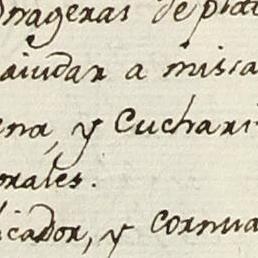 nageras de plat
aiudar a missa
ena, y Cuchari
orales.
icador, y cornua